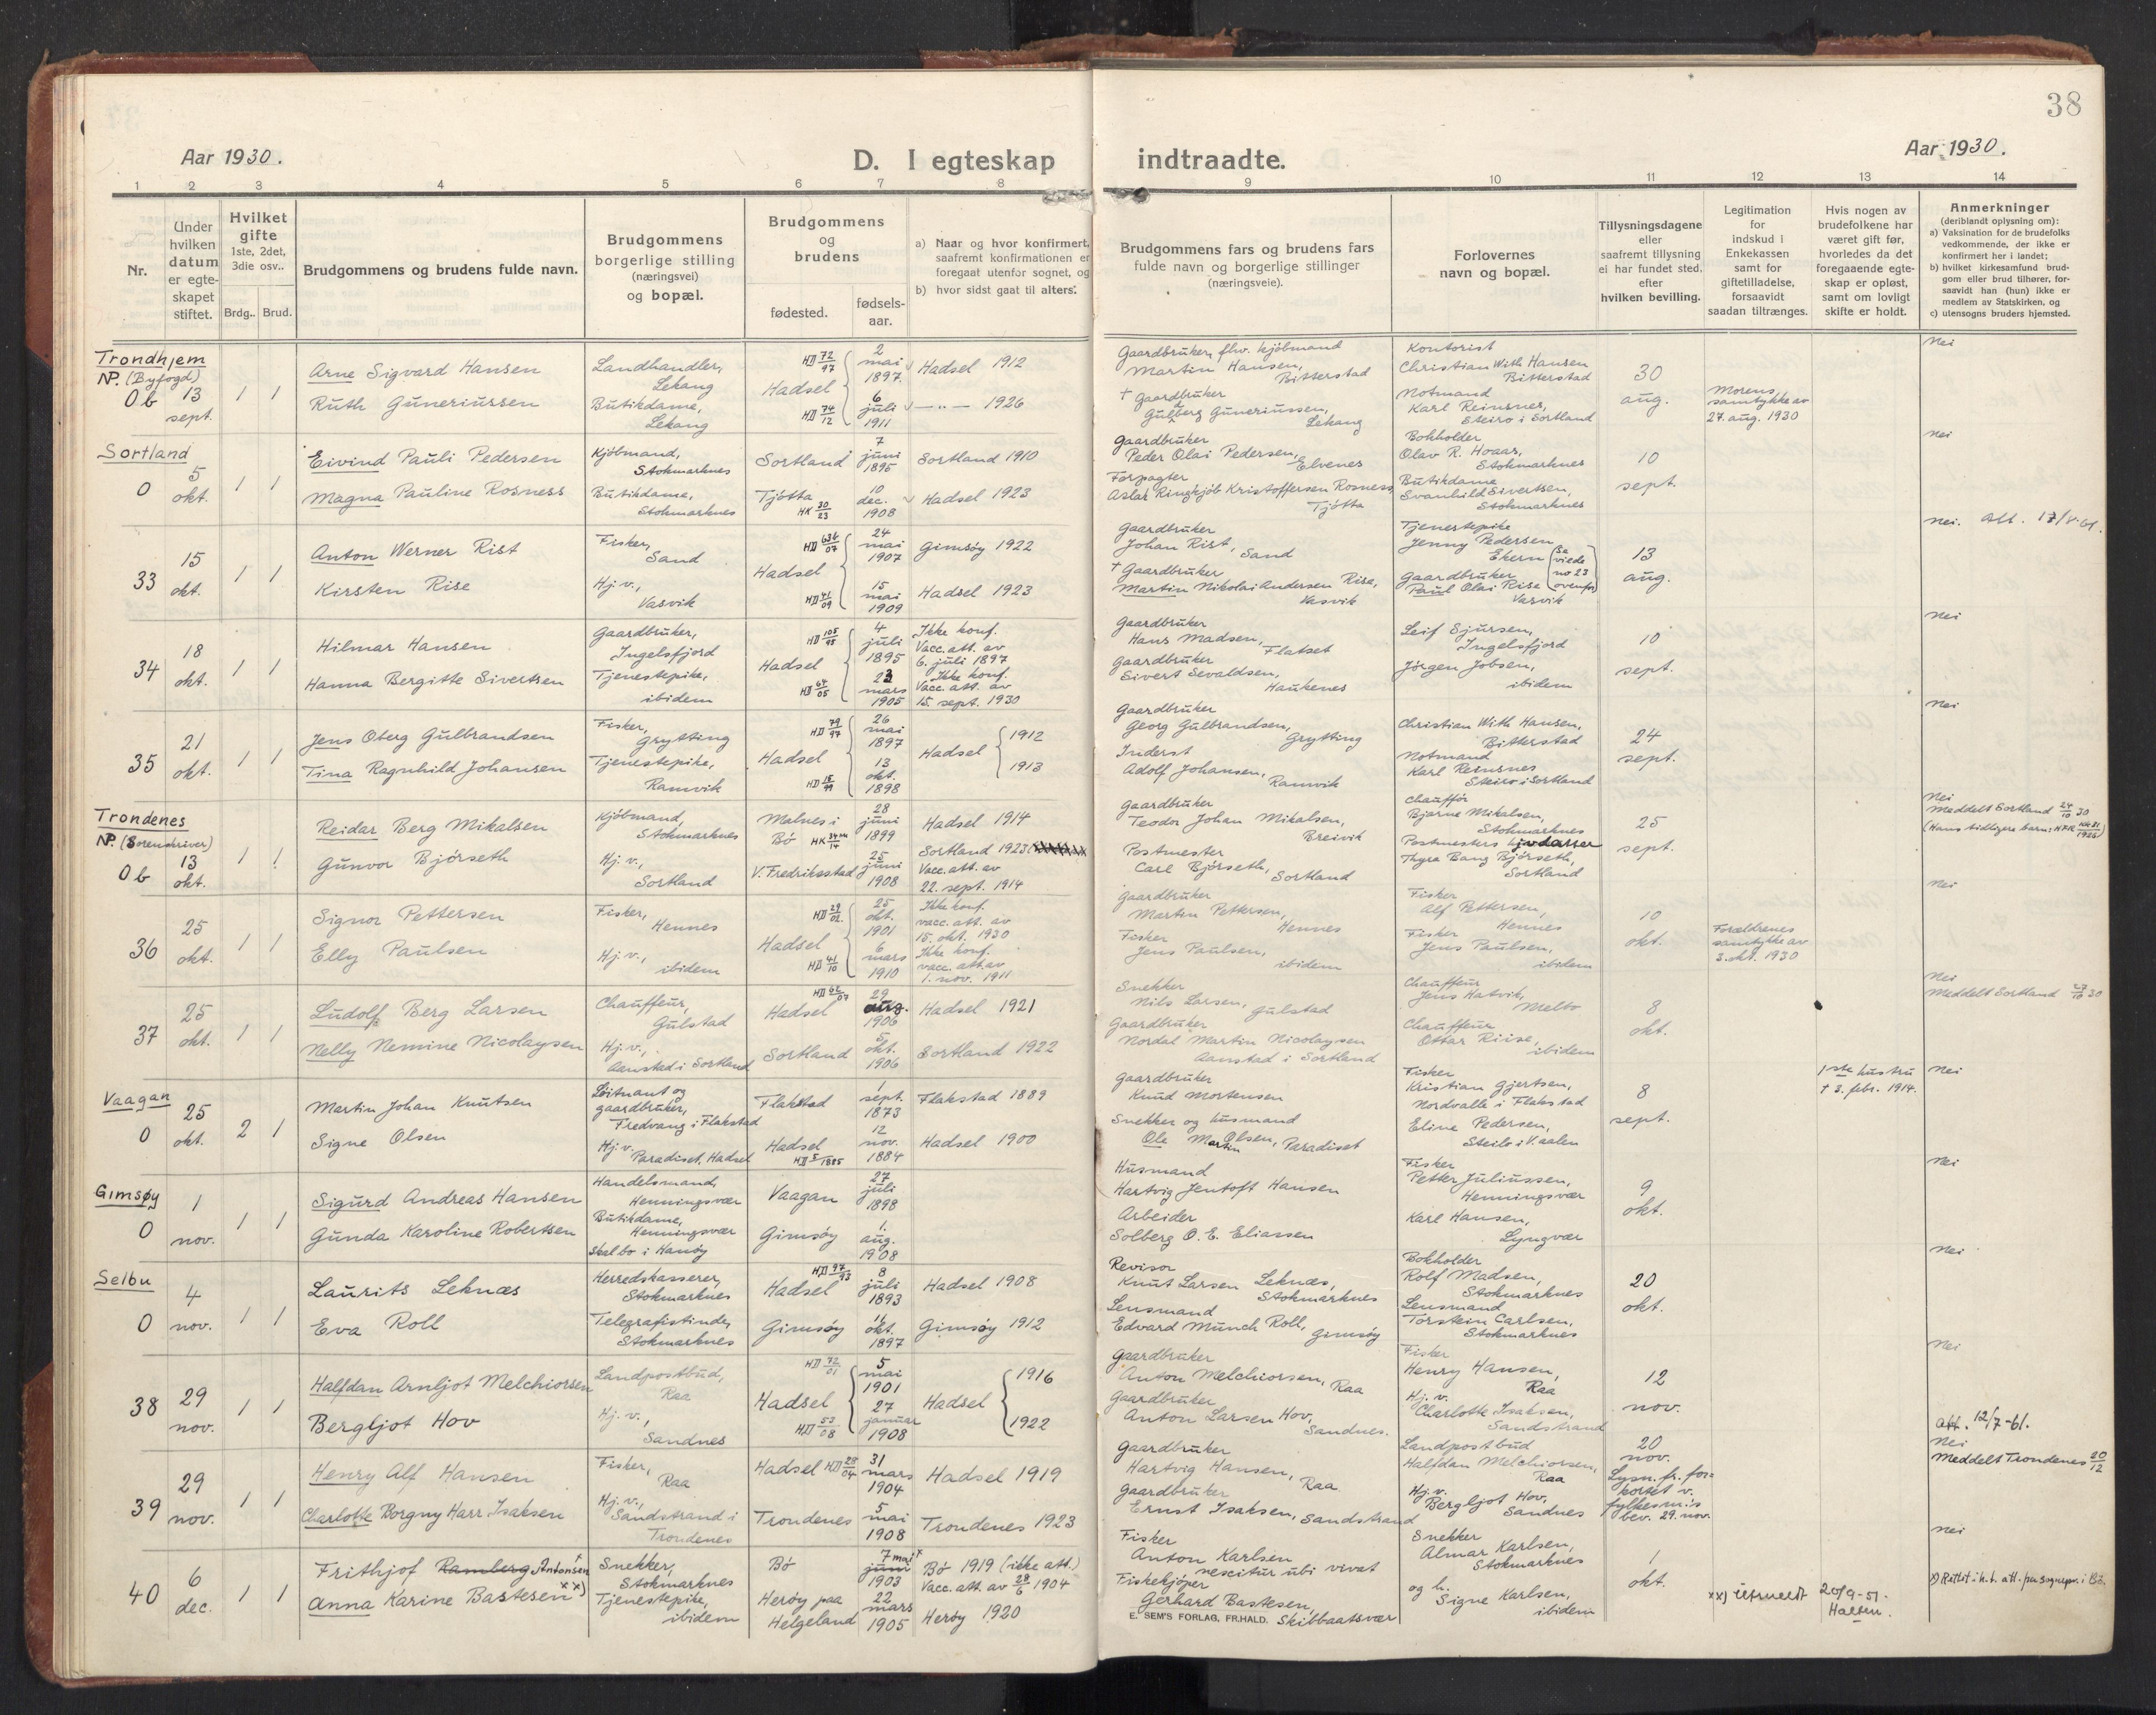 38
Aar 1930.
D. I egteskap indtraadte.
Aar 1930.
1 2 3 4 5 6 7 8 9 10 11 12 13 14
Nr.
Under hvilken datum er egteskapet stiftet.
Hvilket gifte 1ste, 2det, 3die osv..
Brdg.. Brud.
Brudgommens og brudens fulde navn.
Brudgommens borgerlige stilling (næringsvei) og bopæl.
Brudgommens og brudens
fødested.
fødselsaar.
a) Naar og hvor konfirmert, saafremt konfirmationen er foregaat utenfor sognet, og
b) hvor sidst gaat til alters.
Brudgommens fars og brudens fars fulde navn og borgerlige stillinger (næringsveie).
Forlovernes navn og bopæl.
Tillysningsdagene eller saafremt tillysning ei har fundet sted, efter hvilken bevilling.
Legitimation for indskud i Enkekassen samt for giftetilladelse, forsaavidt saadan tiltrænges.
Hvis nogen av brudefolkene har været gift før, hvorledes da det foregaaende egteskap er opløst, samt om lovligt skifte er holdt.
Anmerkninger (deriblandt oplysning om):
a) Vaksination for de brudefolks vedkommende, der ikke er konfirmert her i landet;
b) hvilket kirkesamfund brudgom eller brud tilhører, forsaavidt han (hun) ikke er medlem av Statskirken, og
c) utensogns bruders hjemsted.
Trondhjem
NP. (Byfogd)
Ob 13 sept. 1 1
Arne Sigvard Hansen
Landhandler, Lekang
Hadsel HD 72/97
2 mai 1897
Hadsel 1912
Gaardbruker, fhv. kjøbmand Martin Hansen, Bitterstad
Kontorist Christian With Hansen Bitterstad
30 aug.
Morens samtykke av 27. aug. 1930
Nei
Ruth Guneriussen
Butikdame, Lekang
HD 74/12
6 juli 1911
—"— 1926
† Gaardbruker Gulberg Guneriussen, Lekang
Notmand Karl Reinsnes, Steiro i Sortland
Sortland
0 5 okt. 1 1
Eivind Pauli Pedersen
Kjøbmand, Stokmarknes
Sortland
7 juni 1895
Sortland 1910
Gaardbruker Peder Olai Pedersen, Elvenes
Bokholder Olav R. Hoaas, Stokmarknes
10 sept.
Nei
Magna Pauline Rosness
Butikdame, Stokmarknes
Tjøtta HK 30/23
10 dec. 1908
Hadsel 1923
Forpagter Aslak Ringkjøb Kristoffersen Rosness, Tjøtta
Butikdame Svanhild Sivertsen, Stokmarknes
33 15 okt. 1 1
Anton Werner Rist
Fisker, Sand
Hadsel HD 636/07
24 mai 1907
Gimsøy 1922
Gaardbruker Johan Rist, Sand
Tjenestepike Jenny Pedersen Ekern (se viede no 23 ovenfor)
13 aug.
Nei. Att. 17/V-61.
Kirsten Rise
Hj. v., Vasvik
HD 41/09
15 mai 1909
Hadsel 1923
† Gaardbruker Martin Nikolai Andersen Rise, Vasvik
Gaardbruker Paul Olai Rise Vasvik
34 18 okt. 1 1
Hilmar Hansen
Gaardbruker, Ingelsfjord
Hadsel HD 105/95
4 juli 1895
Ikke konf. Vacc. att. av 6. juli 1897
Gaardbruker Hans Madsen, Flatset
Leif Sjursen, Ingelsfjord
10 sept.
Nei
Hanna Bergitte Sivertsen
Tjenestepike, ibidem
HD 64/05
23 mars 1905
Ikke konf. Vacc. att. av 15. sept. 1930
Gaardbruker Sivert Sevaldsen, Haukenes
Jørgen Jobsen, ibidem
35 21 okt. 1 1
Jens Oberg Gulbrandsen
Fisker, Grytting
Hadsel HD 79/97
26 mai 1897
Hadsel 1912
Gaardbruker Georg Gulbrandsen, Grytting
Christian With Hansen, Bitterstad
24 sept.
Nei
Tina Ragnhild Johansen
Tjenestepike, Ramvik
HD 15/99
13 okt. 1898
1913
Inderst Adolf Johansen, Ramvik
Notmand Karl Reinsnes Steiro i Sortland
Trondenes
NP. (Sorenskriver)
Ob 13 okt. 1 1
Reidar Berg Mikalsen
Kjøbmand, Stokmarknes
Malnes i Bø
28 juni 1899
Hadsel 1914
Gaardbruker Teodor Johan Mikalsen, Breivik
Chauffør Bjarne Mikalsen, Stokmarknes
25 sept.
Nei
Meddelt Sortland 24/10 30
Gunvor Bjørseth
Hj. v., Sortland
V. Fredriksstad
25 juni 1908
Sortland 1923
Vacc. att. av 22. sept. 1914
Postmester Carl Bjørseth, Sortland
Thyra Bang Bjørseth, Sortland
36 25 okt. 1 1
Signor Pettersen
Fisker, Hennes
Hadsel HD 29/02
25 okt. 1901
Ikke konf. vacc. att. av 15. okt. 1930
Gaardbruker Martin Pettersen, Hennes
Fisker Alf Pettersen, Hennes
10 okt.
Forældrenes samtykke av 3. okt. 1930
Nei
Elly Paulsen
Hj. v., ibidem
HD 41/10
6 mars 1910
Ikke konf. vacc. att. av 1. nov. 1911
Fisker Jens Paulsen, ibidem
Fisker Jens Paulsen, ibidem
37 25 okt. 1 1
Ludolf Berg Larsen
Chauffeur, Gulstad
Hadsel HD 62/07
29 aug. 1906
Hadsel 1921
Snekker Nils Larsen, Gulstad
Chauffeur Jens Hatvik, Melbo
8 okt.
Nei
Meddelt Sortland 27/10 30
Nelly Nemine Nicolaysen
Hj. v., Aanstad i Sortland
Sortland
5 okt. 1906
Sortland 1922
Gaardbruker Nordal Martin Nicolaysen Aanstad i Sortland
Chauffeur Ottar Riise, ibidem
Vaagan
0 25 okt. 2 1
Martin Johan Knutsen
Løitnant og gaardbruker, Fredvang i Flakstad
Flakstad
1 sept. 1873
Flakstad 1889
Gaardbruker Knud Mortensen
Fisker Kristian Gjertsen, Nordvalle i Flakstad
8 sept.
1ste hustru † 3. febr. 1914.
Nei
Signe Olsen
Hj. v. Paradiset, Hadsel
Hadsel HD 5/1885
12 nov. 1884
Hadsel 1900
Snekker og husmand Ole Martin Olsen, Paradiset
Eline Pedersen, Steilo i Vaalen
Gimsøy
0 1 nov. 1 1
Sigurd Andreas Hansen
Handelsmand, Henningsvær
Vaagan
27 juli 1898
Husmand Hartvig Jentoft Hansen
Fisker Petter Juliussen, Henningsvær
9 okt.
Nei
Gunda Karoline Robertsen
Butikdame, Henningsvær
Skal bo i Hanøy
Gimsøy
1. aug. 1908
Arbeider Solberg O. E. Eliassen
Karl Hansen, Lyngvær
Selbu
0 4 nov. 1 1
Laurits Leknæs
Herredskasserer, Stokmarknes
Hadsel HD 97/93
8 juli 1893
Hadsel 1908
Revisor Knut Larsen Leknæs, Stokmarknes
Bokholder Rolf Madsen, Stokmarknes
20 okt.
Nei
Eva Roll
Telegrafistinde, Stokmarknes
Gimsøy
11 okt. 1897
Gimsøy 1912
Lensmand Edvard Munch Roll, Gimsøy
Lensmand Torstein Carlsen, Stokmarknes
38 29 nov. 1 1
Halfdan Arnljot Melchiorsen
Landpostbud, Raa
Hadsel HD 72/01
5 mai 1901
Hadsel 1916
Gaardbruker Anton Melchiorsen, Raa
Fisker Henry Hansen, Raa
12 nov.
Nei
Bergljot Hov
Hj. v., Sandnes
HD 53/08
27 januar 1908
1922
Gaardbruker Anton Larsen Hov, Sandnes.
Hj. v. Charlotte Isaksen, Sandstrand
att. 12/7-61.
39 29 nov. 1 1
Henry Alf Hansen
Fisker, Raa
Hadsel HD 28/04
31 mars 1904
Hadsel 1919
Gaardbruker Hartvig Hansen, Raa
Landpostbud Halfdan Melchiorsen, Raa
20 nov.
Lysn. fr. forkortet v. fylkesm:s bev. 29. nov.
Nei
Meddelt Trondenes 20/12
Charlotte Borgny Harr Isaksen
Hj. v., Sandstrand i Trondenes
Trondenes
5 mai 1908
Trondenes 1923
Gaardbruker Ernst Isaksen, Sandstrand
Hj. v. Bergljot Hov, Sandnes
40 6 dec. 1 1
Frithjof Ramberg Antonsen
Snekker, Stokmarknes
Bø
7 mai x juni 1903
Bø 1919 (ikke att.)
Vacc. att. av 28/6 1904
Fisker Anton Karlsen nescitur ubi vivat
Snekker Almar Karlsen, Stokmarknes
1 okt.
Nei
Anna Karine Bastesen xx)
Tjenestepike, ibidem
Herøy paa Helgeland
22 mars 1905
Herøy 1920
Fiskekjøper Gerhard Bastesen, Skibbaatsvær
og h. Signe Karlsen, ibidem
xx) Utmeldt 20/9-51 Halsen.
E. SEM'S FORLAG, FR.HALD.